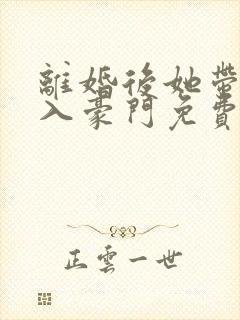 離婚後她帶
入豪門免費
正雲一世